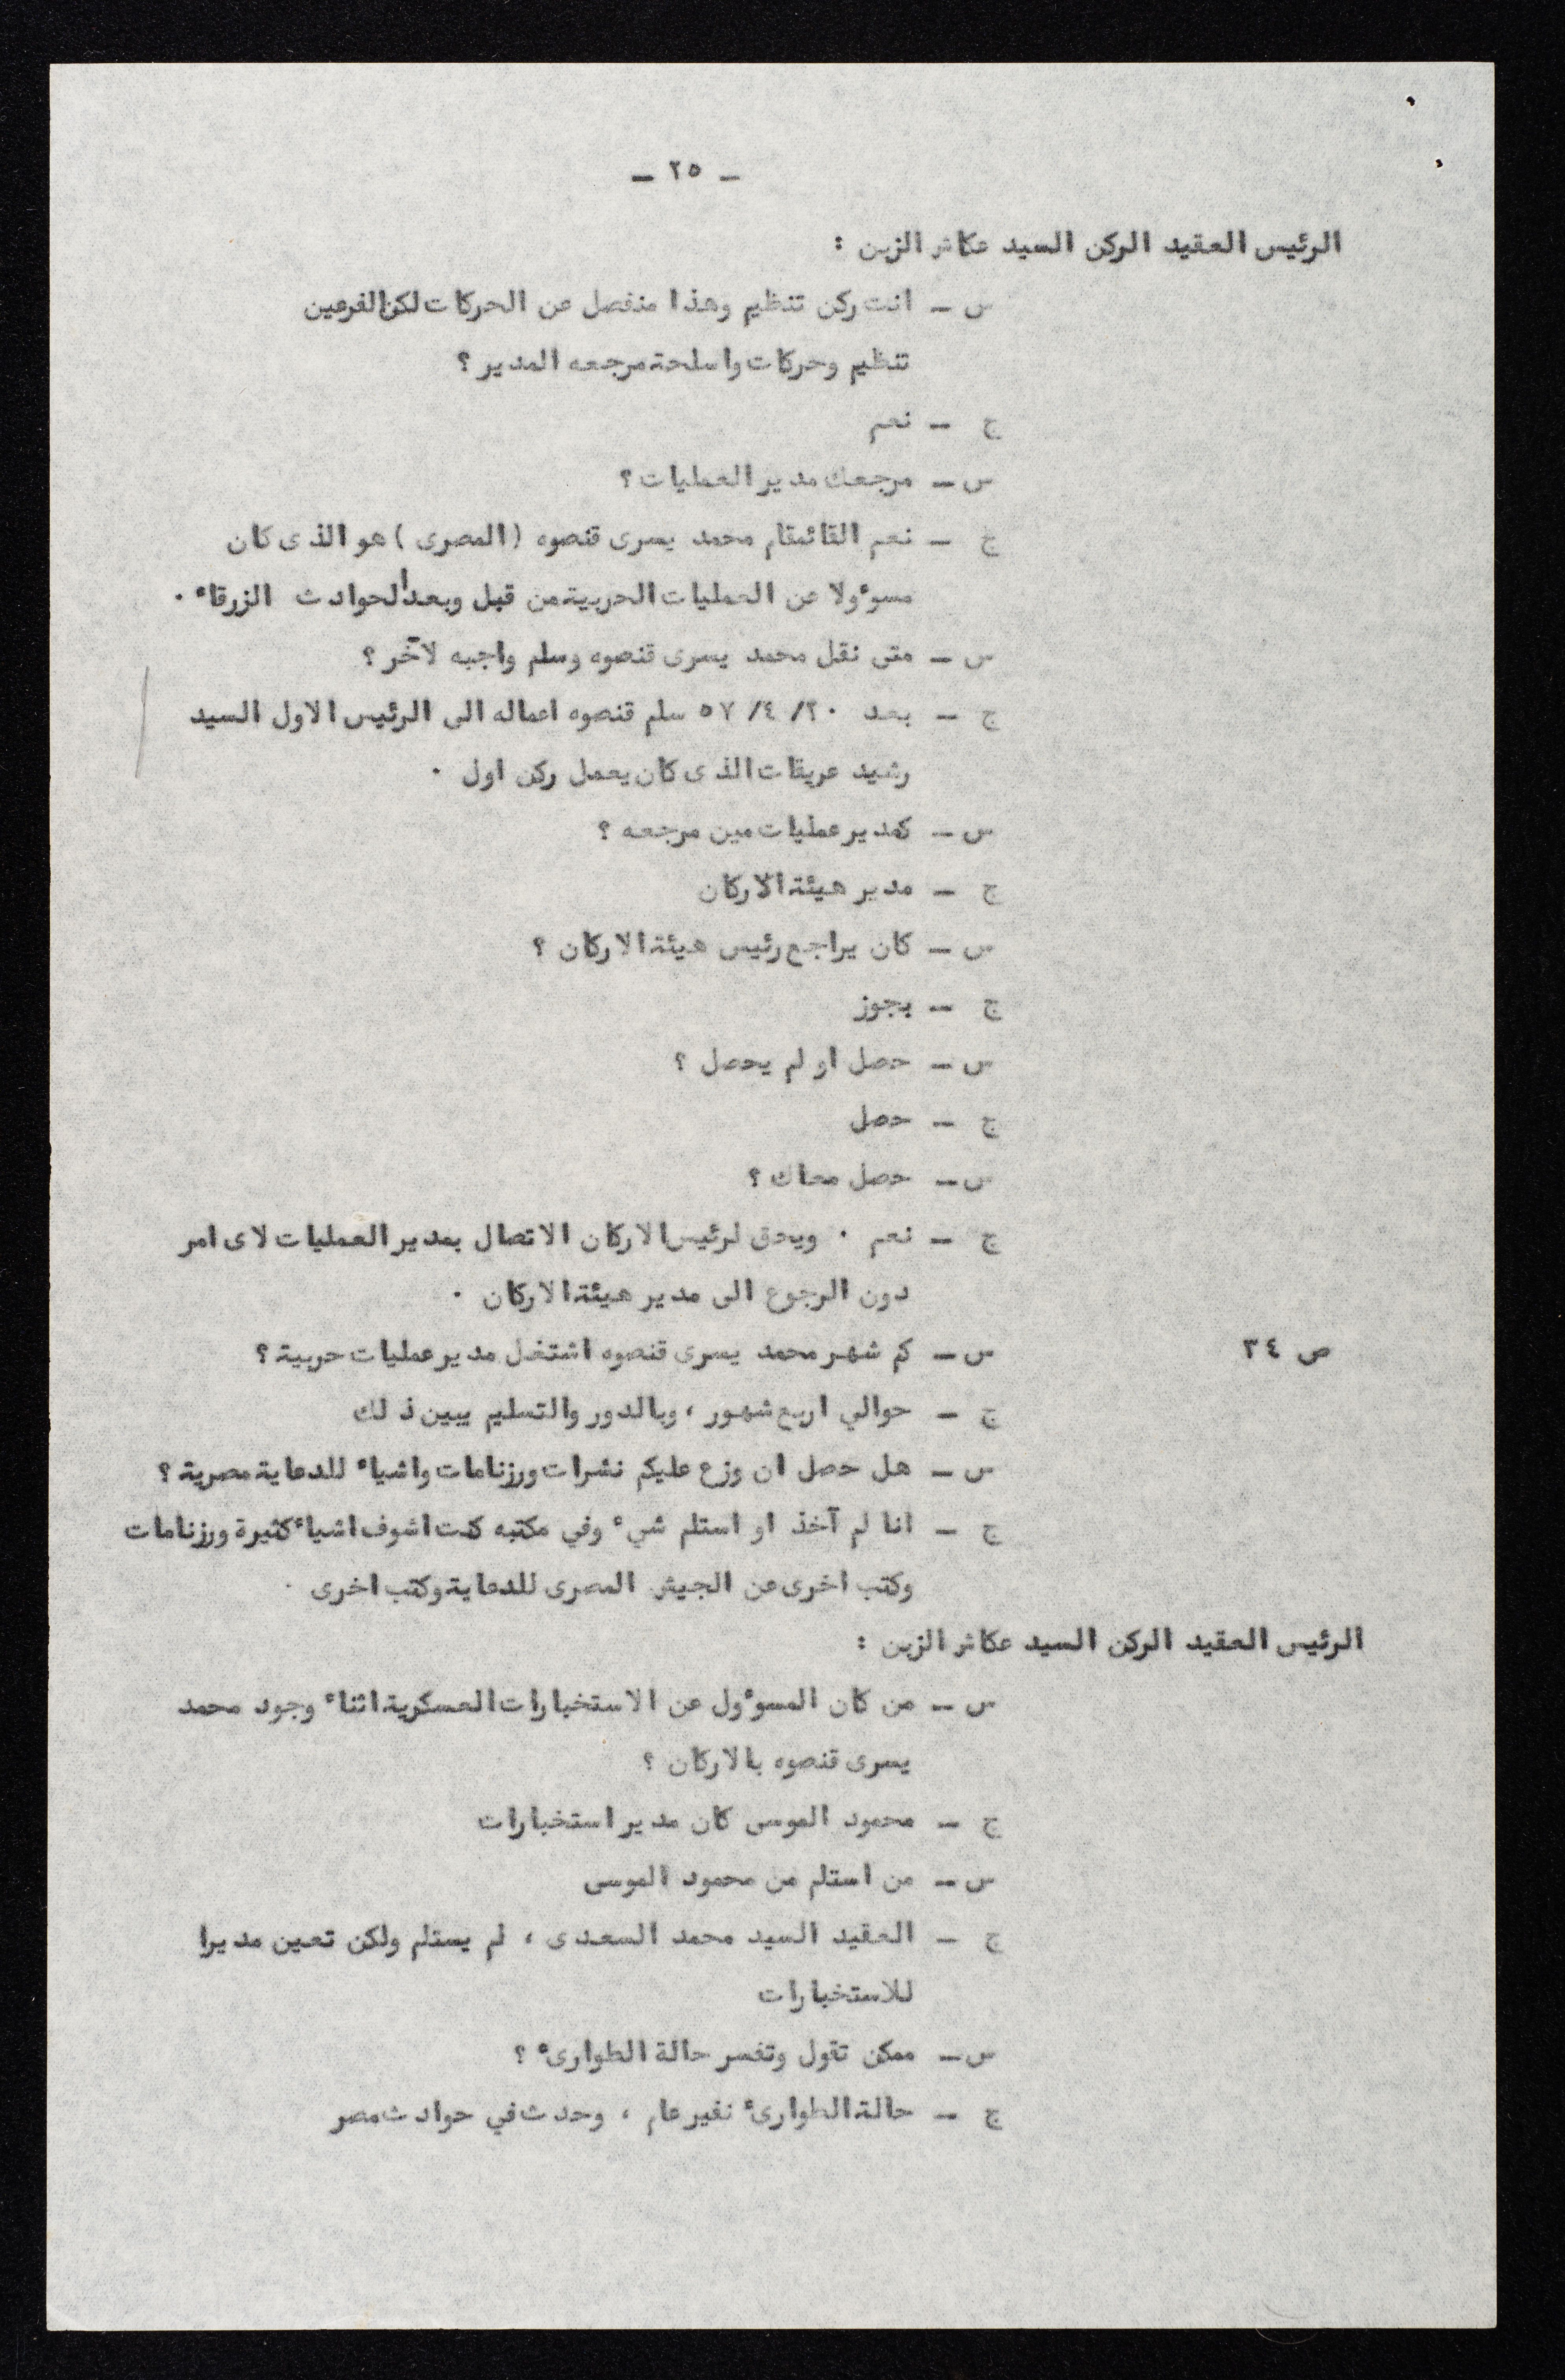 - ٢٥ -
الرئيس العقيد الركن السيد عكاش الزبن :
س - انت ركن تنظيم وهذا منفصل عن الحركات لكن الفرعين
تنظيم وحركات واسلحة مرجعه المدير ؟
ج - نعم
س - مرجعك مدير العمليات ؟
ج - نعم القائمقام محمد يسرى قنصوه (المصرى) هو الذى كان
مسوءولا عن العمليات الحربية من قبل وبعد الحوادث الزرقاء .
س - متى نقل محمد يسرى قنصوه وسلم واجبه لآخر ؟
ج - بعد ٢٠/ ٤/ ٥٧ سلم قنصوه اعماله الى الرئيس الاول السيد
رشيد عريقات الذى كان يعمل ركن اول .
س - كمدير عمليات مين مرجعه ؟
ج - مدير هيئة الاركان
س - كان يراجع رئيس هيئة الاركان ؟
ج - يجوز
س - حصل او لم يحصل ؟
ج - حصل
س - حصل معاك ؟
ج - نعم . ويحق لرئيس الاركان الاتصال بمدير العمليات لاى امر
دون الرجوع الى مدير هيئة الاركان .
ص ٣٤ س - كم شهر محمد يسرى قنصوه اشتغل مدير عمليات حربية ؟
ج - حوالي اربع شهور ، وبالدور والتسليم يبين ذلك
س - هل حصل ان وزع عليكم نشرات ورزنامات واشياء للدعاية مصرية ؟
ج - انا لم آخذ او استلم شيء وفي مكتبه كنت اشوف اشياء كثيرة ورزنامات
وكتب اخرى عن الجيش المصرى للدعاية وكتب اخرى .
الرئيس العقيد الركن السيد عكاش الزبن :
س - من كان المسوءول عن الاستخبارات العسكرية اثناء وجود محمد
يسرى قنصوه بالاركان ؟
ج - محمود الموسى كان مدير استخبارات
س - من استلم من محمود الموسى
ج - العقيد السيد محمد السعدى ، لم يستلم ولكن تعين مديرا
للاستخبارات
س - ممكن تقول وتفسر حالة الطوارىء ؟
ج - حالة الطوارىء نفير عام ، وحدث في حوادث مصر